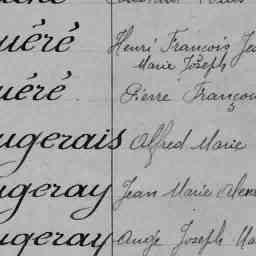 uéré Henri François Jea
Marie Joseph
uéré Pierre Françoi
ugerais Alfred Marie
ugeray Jean Marie Alexa
ugeray Ange Joseph Ma